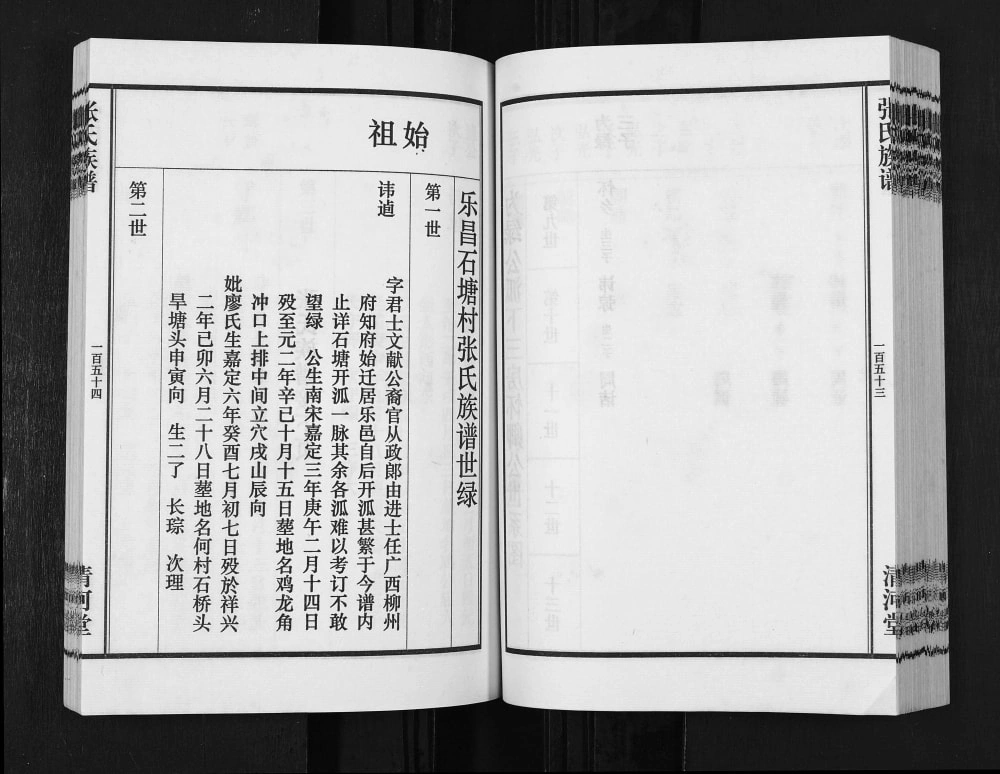 张氏族谱
一百五十三
清河堂
始祖
乐昌石塘村张氏族谱世绿
第一世
讳逌
字君士文献公裔官从政郎由进士任广西柳州
府知府始迁居乐邑自后开派甚繁于今谱内
止详石塘开派一脉其余各派难以考订不敢
望绿 公生南宋嘉定三年庚午二月十四日
殁至元二年辛已十月十五日塟地名鸡龙角
冲口上排中间立穴戌山辰向
妣廖氏生嘉定六年癸酉七月初七日殁於祥兴
二年已卯六月二十八日塟地名何村石桥头
旱塘头申寅向 生二了 长琮 次理
第二世
张氏族谱
一百五十四
清河堂